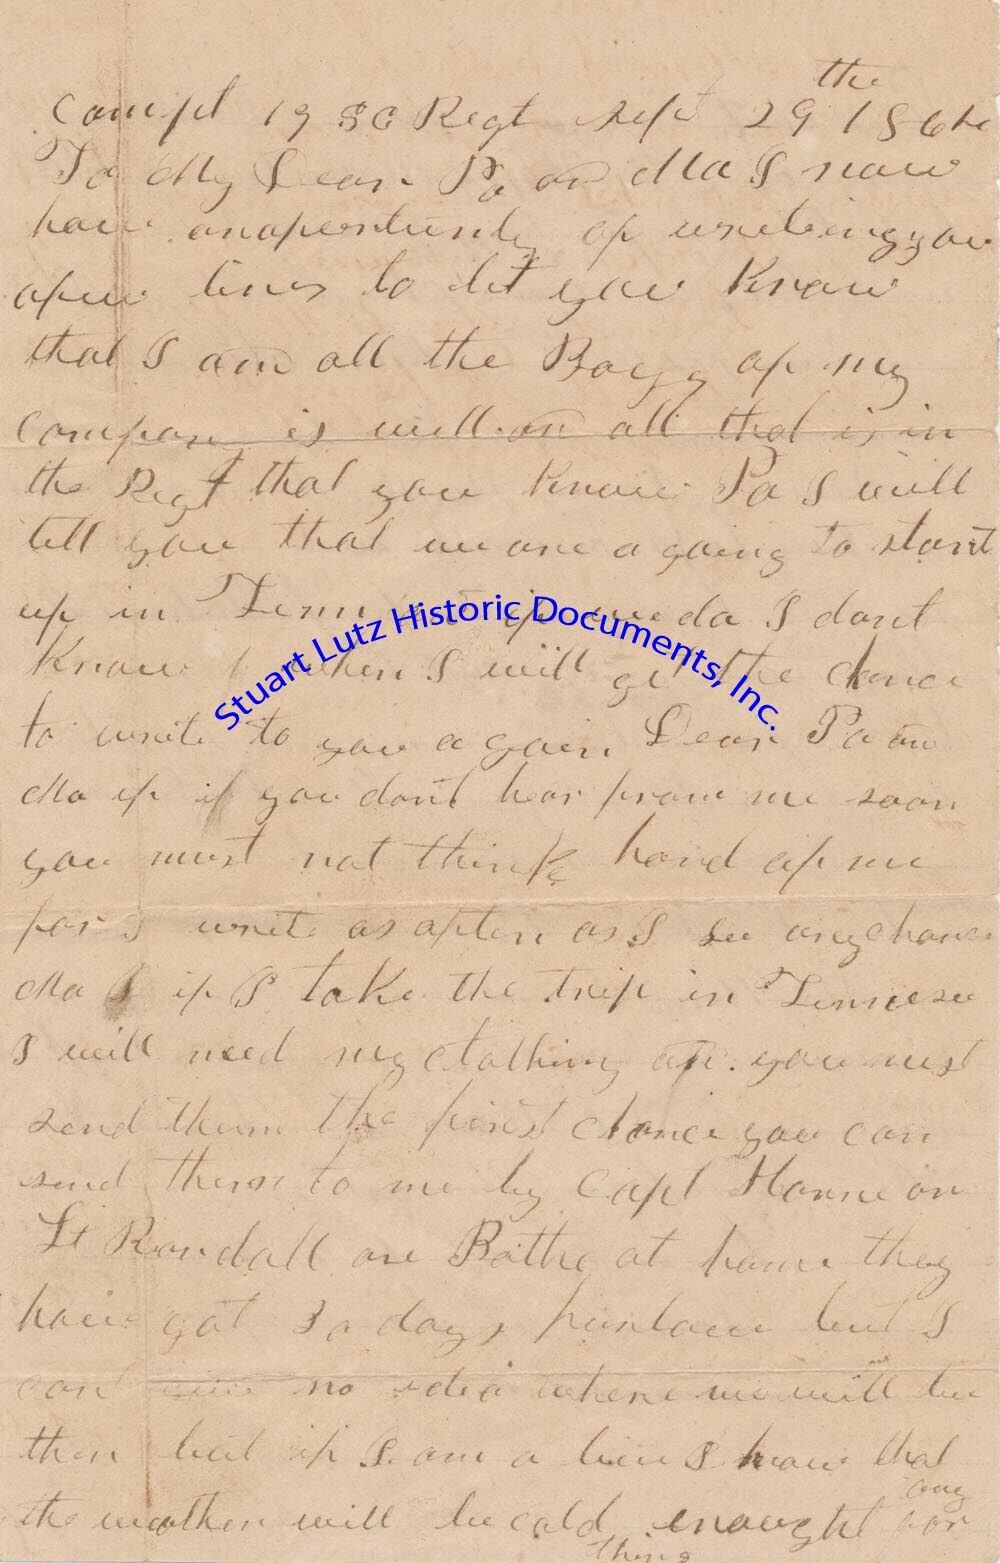 Compt 19 SC Regt Sept 29 the 1864
To My Dear Pa an Ma I now
have anopertunity of writeing you
afew lines to let you know
that I am all the Boys of my
company is well an all that is in
the Regt that you know Pa I will
tell you that we are a going to start
up in if we do I dont
know when I will get the chance
to write to you a gain Dear Pa an
Ma if if you dont hear from me soon
you must not think hard of me
for I write as often as I see any chance
Ma I if I take the trip in Tennesee
I will need my clothing an you must
send them the first chance you can
send them to me by Capt Horne or
Lt Randall are Bothe at home they
have got 30 days furlow but I
cant give no idea where we will be
then but if I am a live I know that
the weather will be cold enought for any
thing
Stuart Lutz Historic Documents, Inc.